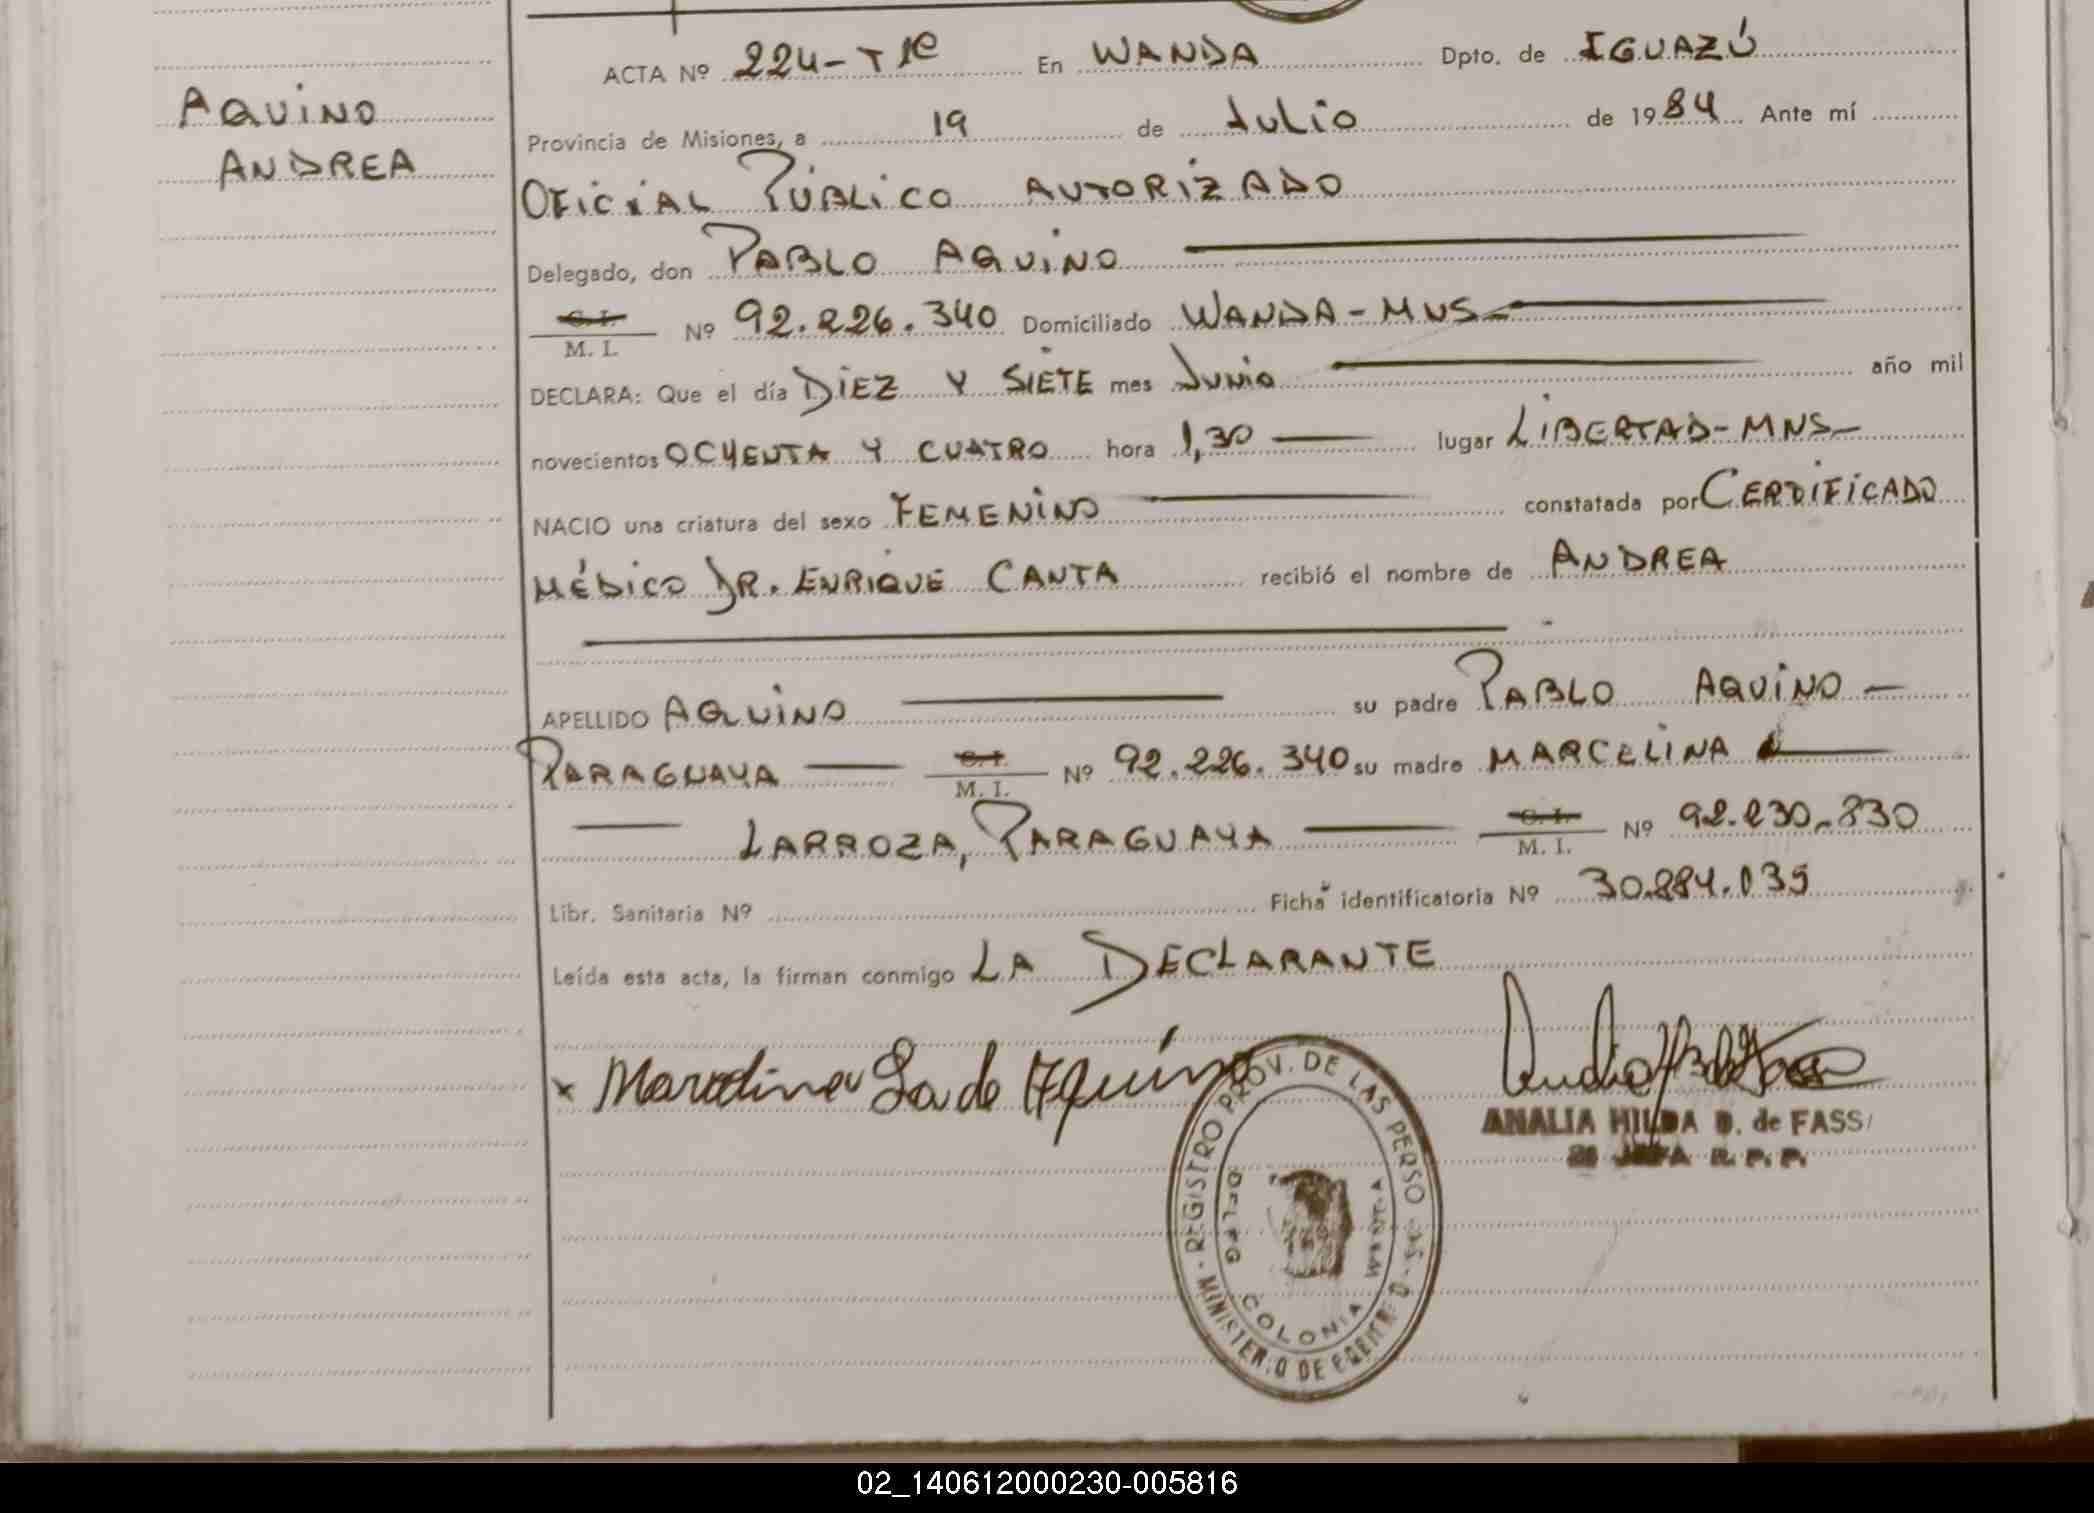 AQUINO
ANDREA
ACTA Nº 224-T En WANDA Dpto. de IGUAZÚ
Provincia de Misiones, a 19 de Julio de 1984 Ante mí
OFICIAL PÚBLICO AUTORIZADO
Delegado, don PABLO AQUINO
C. I.
M. I. Nº 92.226.340 Domiciliado WANDA-MNS
DECLARA: Que el día DIEZ Y SIETE mes Junio año mil
novecientos OCHENTA Y CUATRO hora 1,30 lugar LIBERTAD-MNS
NACIO una criatura del sexo FEMENINO constatada por CERTIFICADO
MÉDICO DR. ENRIQUE CANTA recibió el nombre de ANDREA
APELLIDO AQUINO su padre PABLO AQUINO
PARAGUAYA C. I. M. I. Nº 92.226.340 su madre MARCELINA
LARROZA, PARAGUAYA C. I. M. I. Nº 92.230.830
Libr. Sanitaria Nº Ficha identificatoria Nº 30.884.035
Leída esta acta, la firman conmigo LA DECLARANTE
x Marcelina La de Aquino
ANALIA HILDA D. de FASS
JEFA R. P. P.
REGISTRO PROV. DE LAS PERSO
MINISTERIO DE
COLONIA
02_140612000230-005816